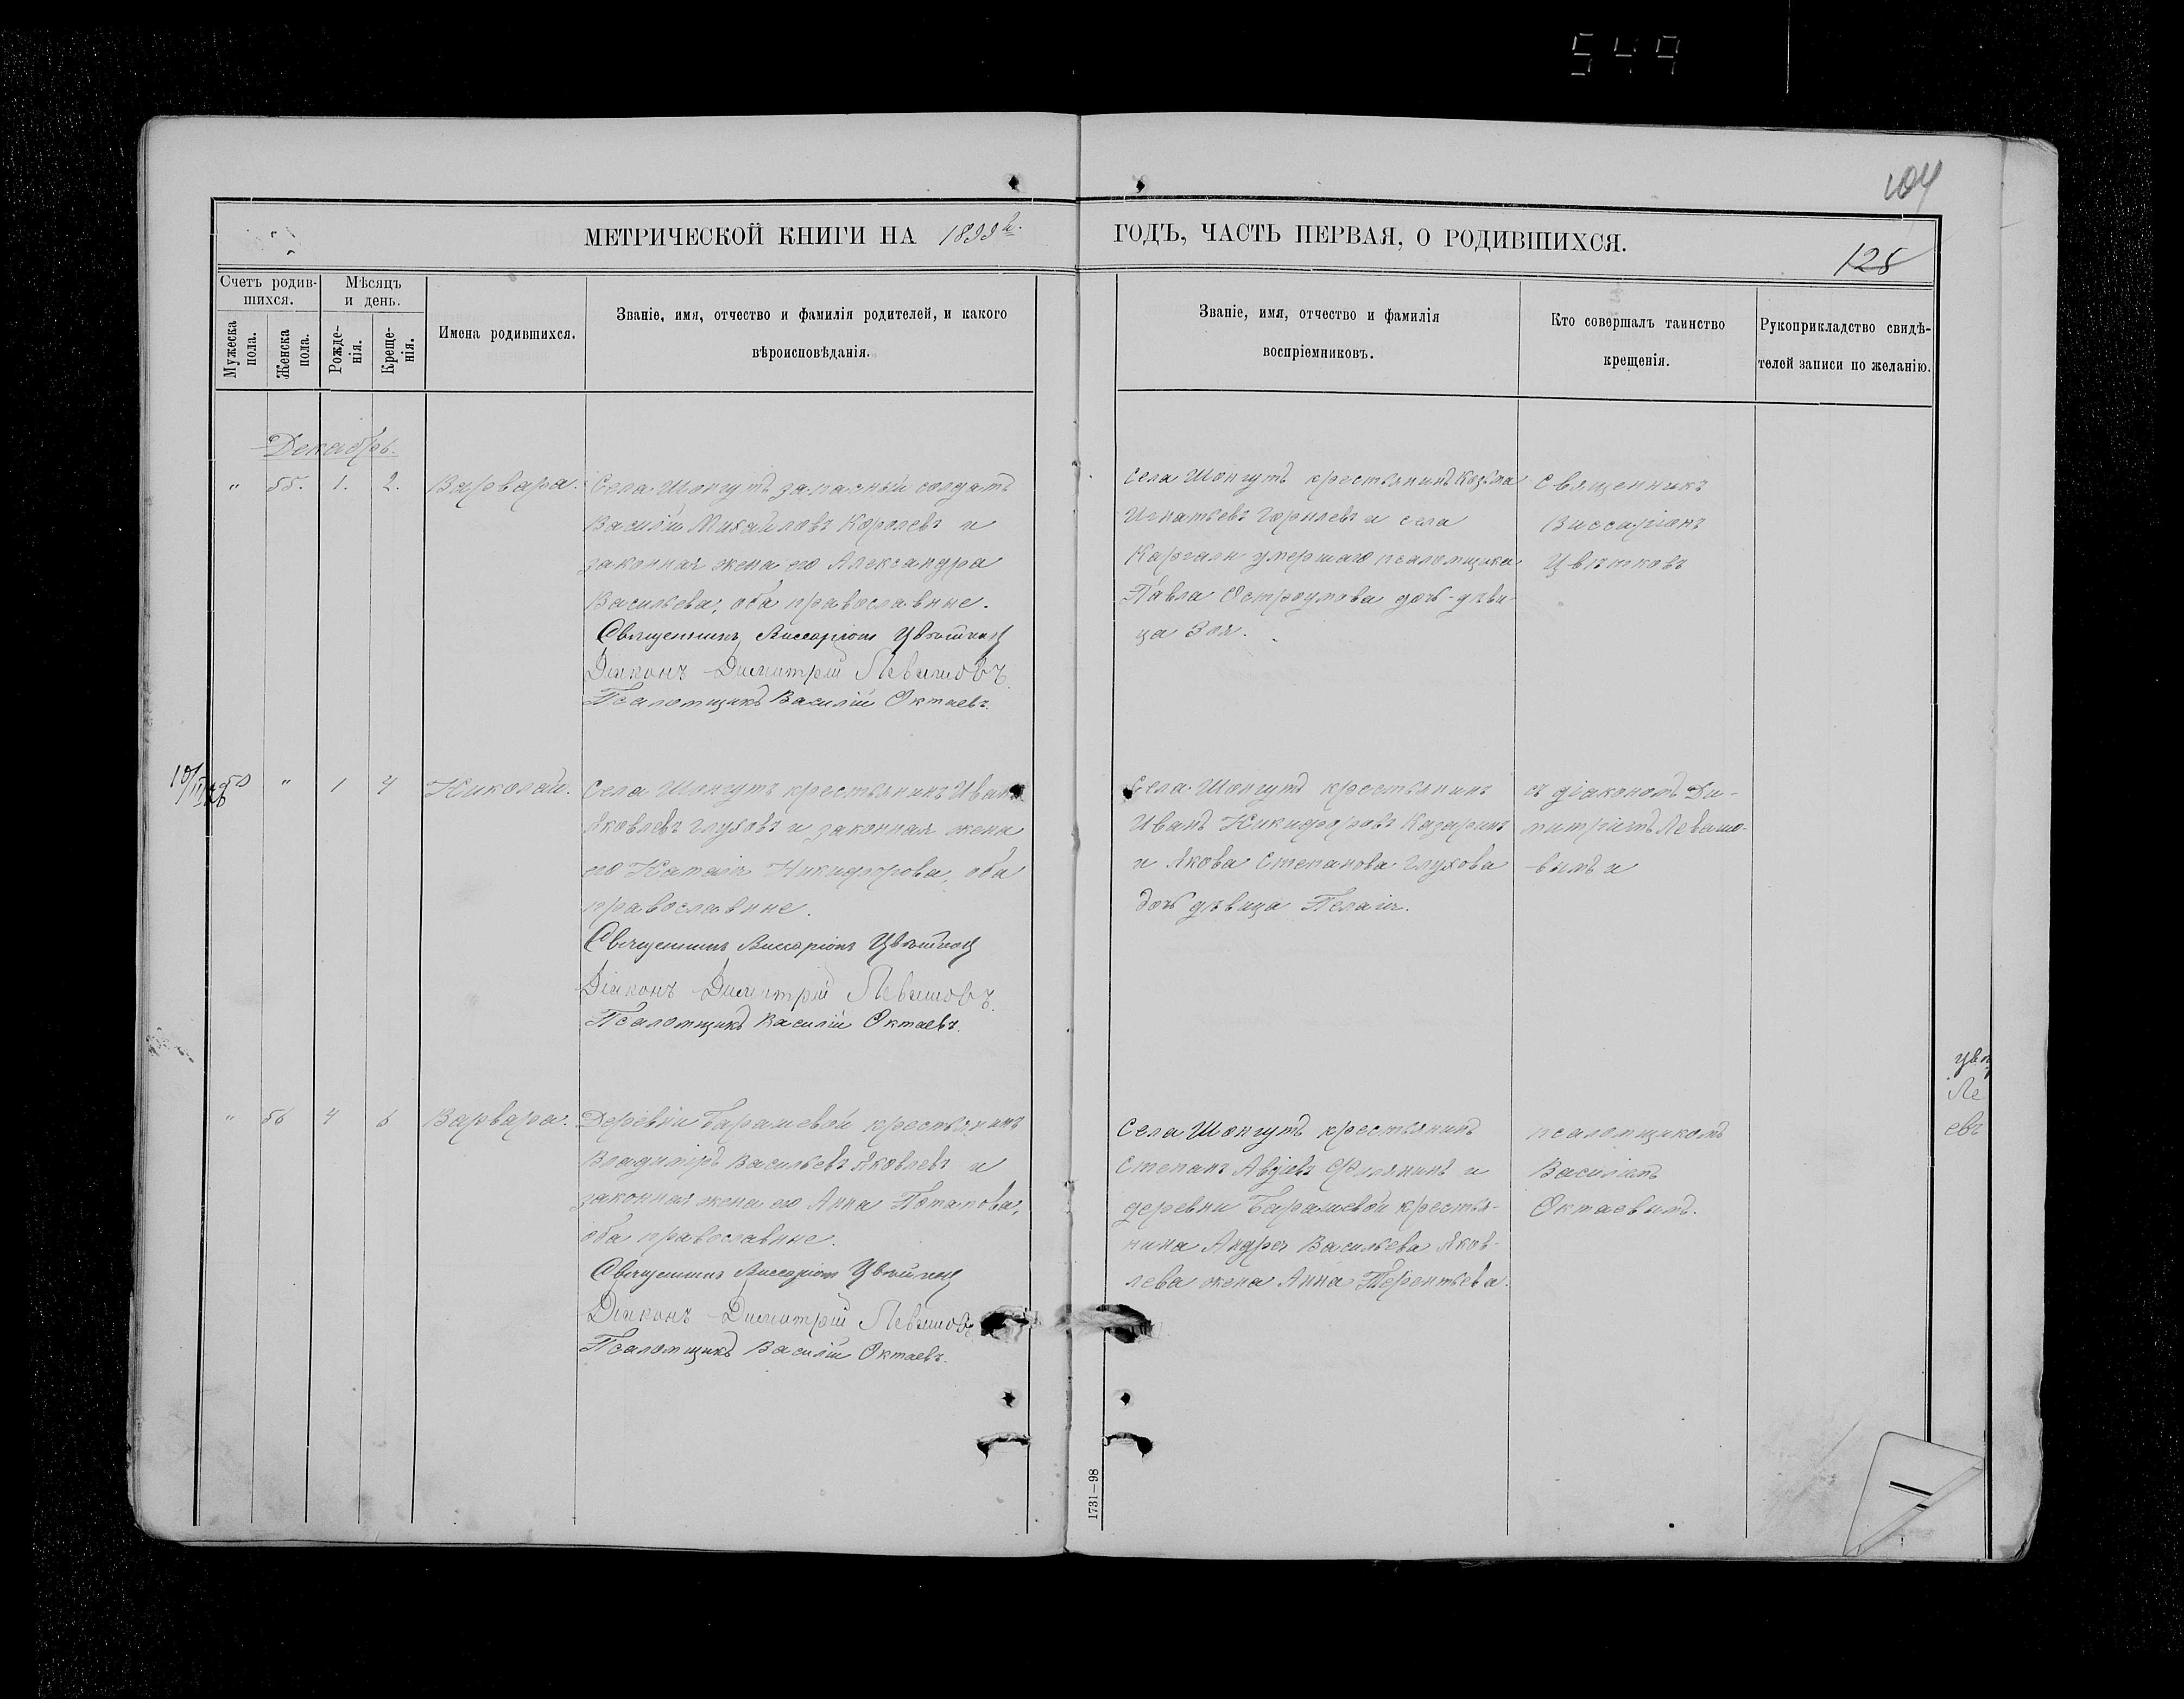 549
104
МЕТРИЧЕСКОЙ КНИГИ НА 1899 й. ГОДЪ, ЧАСТЬ ПЕРВАЯ, О РОДИВШИХСЯ.
128
Счетъ родив-
шихся.
Мужеска
пола.
Женска
пола.
Мѣсяцъ
и день.
Рожде-
нія.
Креще-
нія.
Имена родившихся.
Званіе, имя, отчество и фамилія родителей, и какого
вѣроисповѣданія.
Званіе, имя, отчество и фамилія
воспріемниковъ.
Кто совершалъ таинство
крещенія.
Рукоприкладство свидѣ-
телей записи по желанію.
Декабрь.
" 55. 1. 2. Варвара.
Села Шонгутъ запасный солдатъ
Василій Михайловъ Королевъ и
законная жена его Александра
Васильева, оба православные.
Священникъ Виссаріонъ Цвѣтковъ
Діаконъ Димитрій Левашовъ
Псаломщикъ Василій Октаевъ.
Села Шонгутъ крестьянинъ Козьма
Игнатьевъ и села
Каргали умершаго псаломщика
Павла Остроумова дочь-дѣви-
ца Зоя.
Священникъ
Виссаріонъ
Цвѣтковъ
" 1 4 Николай.
Села Шонгутъ крестьянинъ Иванъ
Яковлевъ Глуховъ и законная жена
его Наталія Никифорова, оба
православные.
Священникъ Виссаріонъ Цвѣтковъ
Діаконъ Димитрій Левашовъ
Псаломщикъ Василій Октаевъ.
Села Шонгутъ крестьянинъ
Иванъ Никифоровъ Казаринъ
и Якова Степанова Глухова
дочь дѣвица Пелагія.
съ діакономъ Ди-
митріемъ Левашо-
-вымъ и
" 56 4 6 Варвара.
Деревни Барашевой крестьянинъ
Владиміръ Васильевъ Яковлевъ и
законная жена его Анна Потапова,
оба православные.
Священникъ Виссаріонъ Цвѣтковъ
Діаконъ Димитрій Левашовъ
Псаломщикъ Василій Октаевъ.
Села Шонгутъ крестьянинъ
Степанъ Авдіевъ и
деревни Барашевой крестья-
нина Андрея Васильева Яков-
лева жена Анна Терентьева.
псаломщикомъ
Василіемъ
Октаевымъ.
Ле
евъ
1731—98